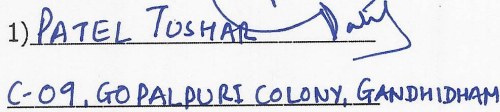 1) PATEL TUSHAR
C-09, GOPALPURI COLONY, GANDHIDHAM